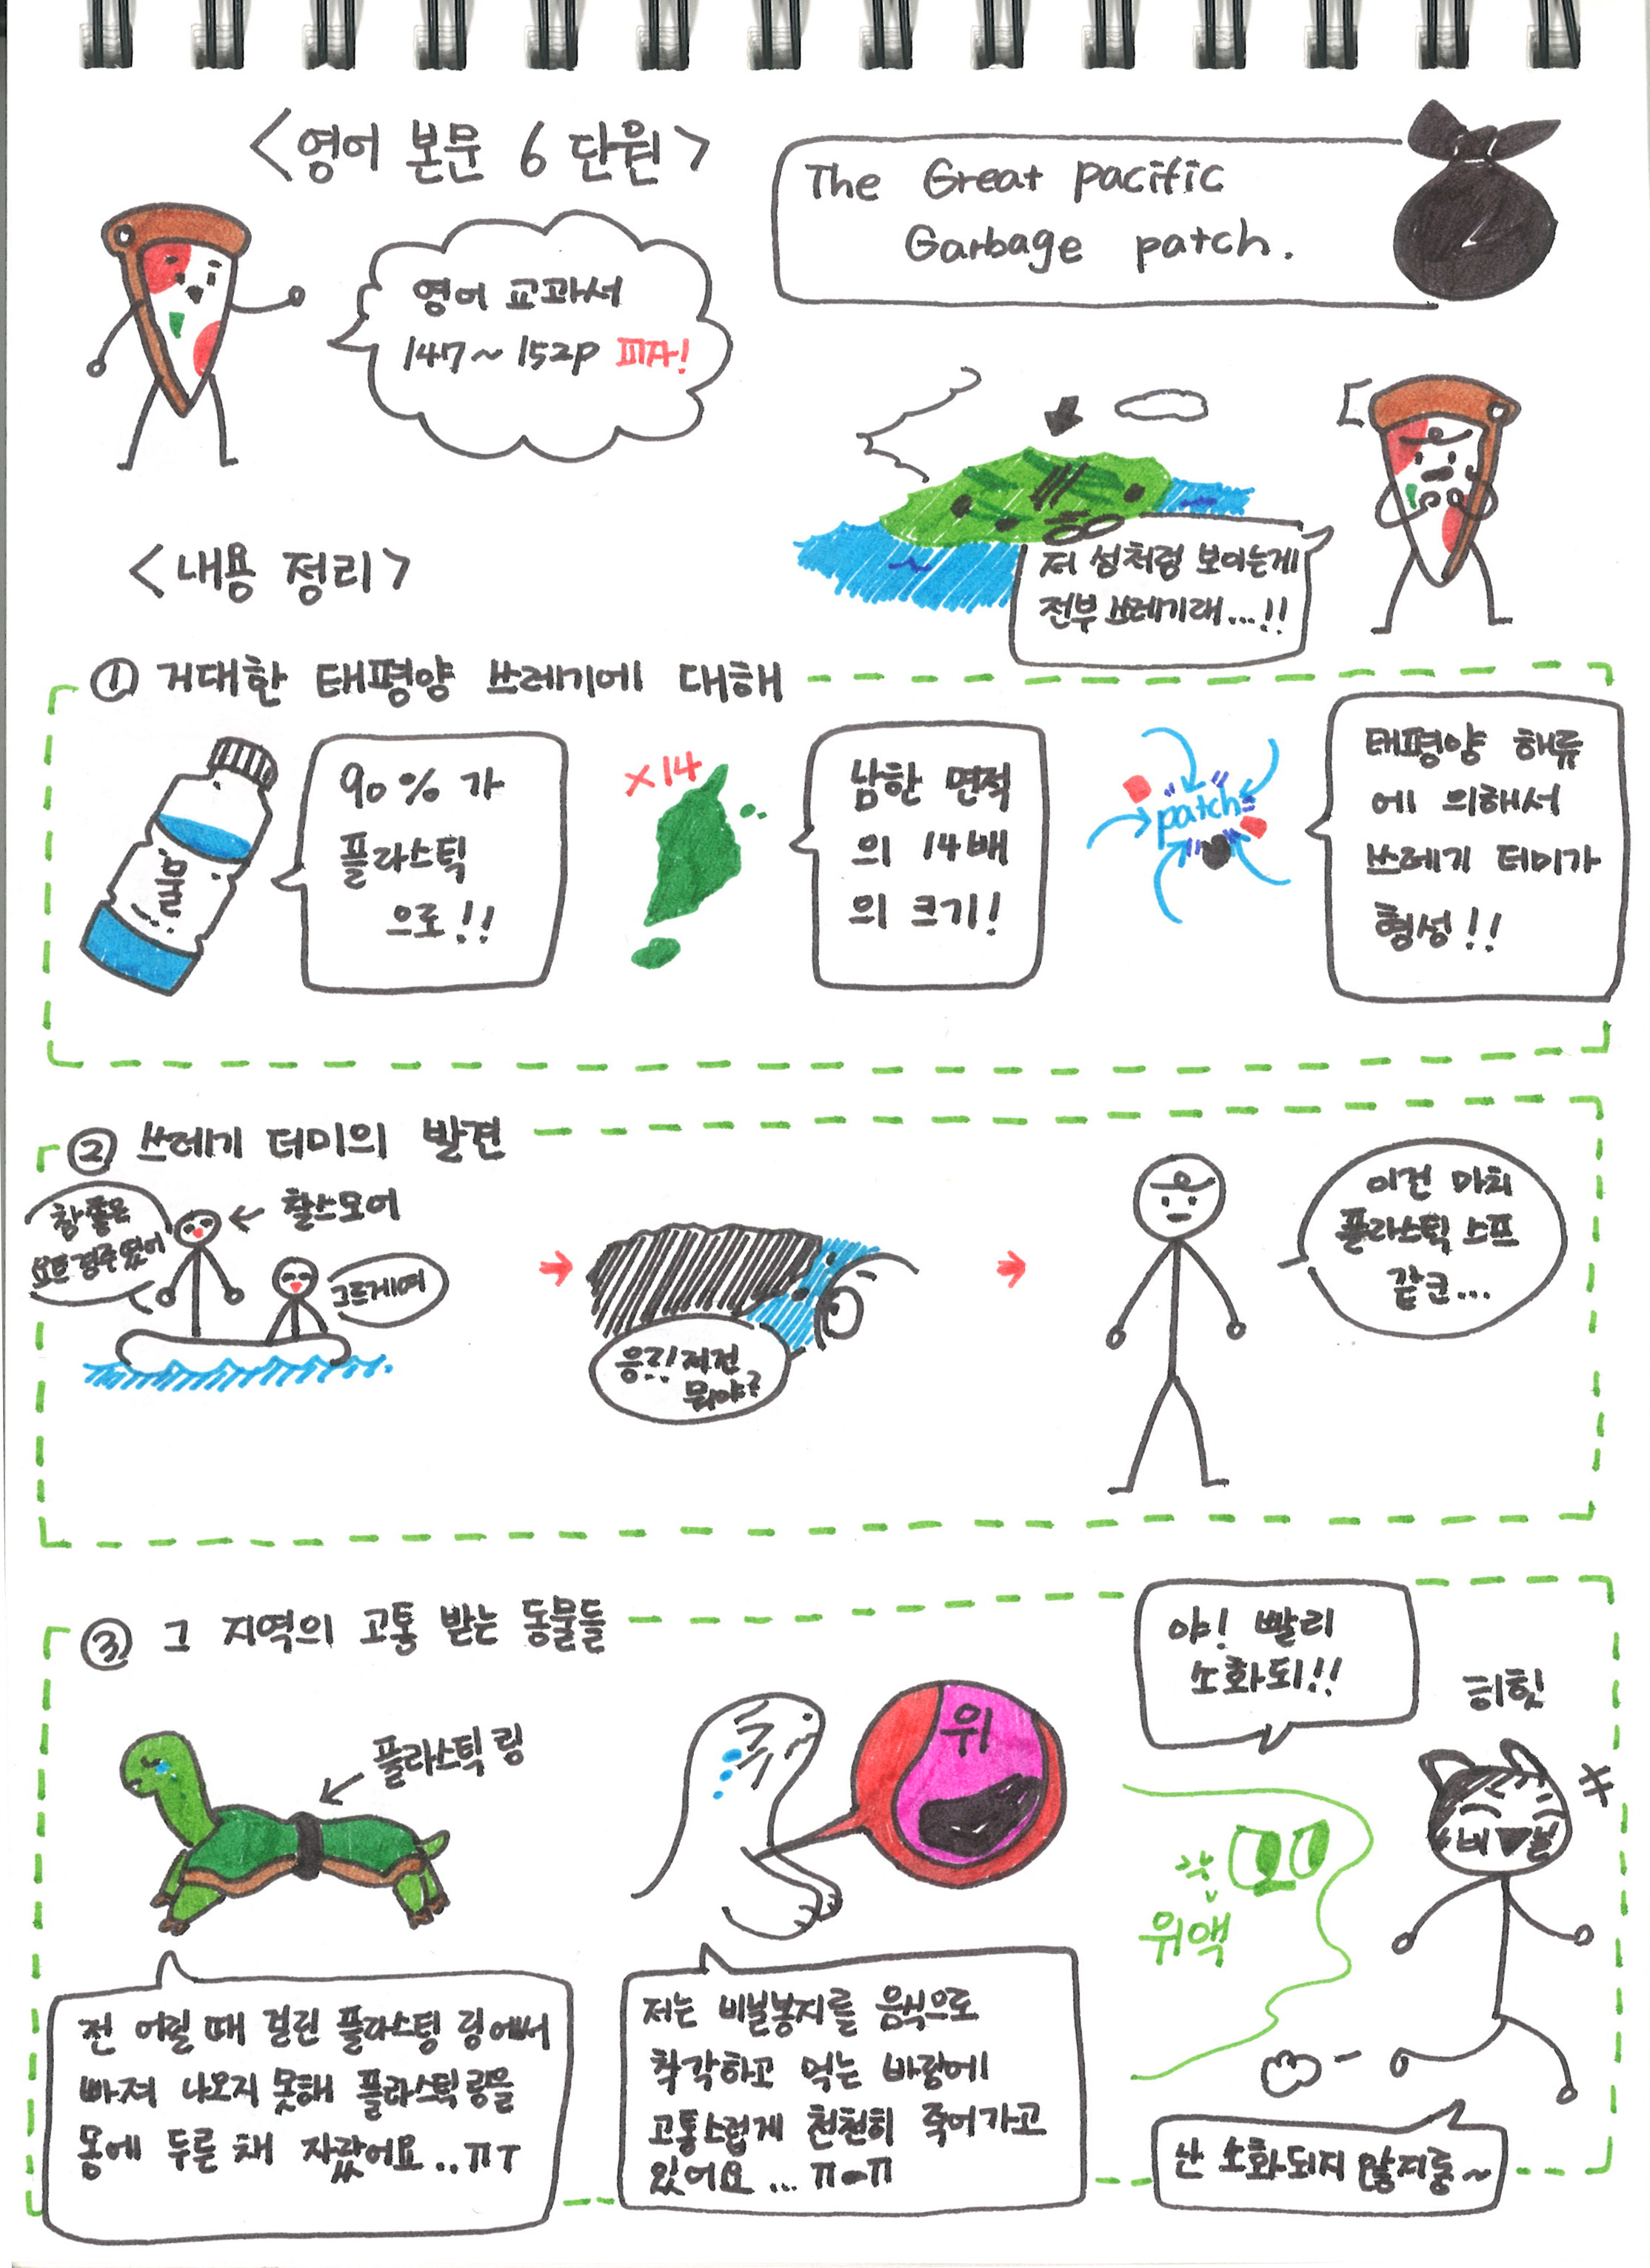 <영어 본문 6 단원>
The Great pacific
Garbage patch.
영어 교과서
147~152p 피자!
저 섬처럼 보이는게
전부 쓰레기래...!!
<내용 정리>
① 거대한 태평양 쓰레기에 대해
물
90%가
플라스틱
으로!!
×14
남한 면적
의 14배
의 크기!
patch
태평양 해류
에 의해서
쓰레기 더미가
형성!!
② 쓰레기 더미의 발견
참 좋은
요트 경주였어
찰스모어
그르게여
응?! 저건
뭐야?
이건 마치
플라스틱 스프
같군...
③ 그 지역의 고통 받는 동물들
플라스틱 링
전 어릴 때 걸린 플라스팅 링에서
빠져 나오지 못해 플라스틱 링을
몸에 두른 채 자랐어요..ㅠㅜ
위
저는 비닐봉지를 음식으로
착각하고 먹는 바람에
고통스럽게 천천히 죽어가고
있어요... ㅠ-ㅠ
야! 빨리
소화되!!
히힛
위액
비닐
난 소화되지 않지롱~